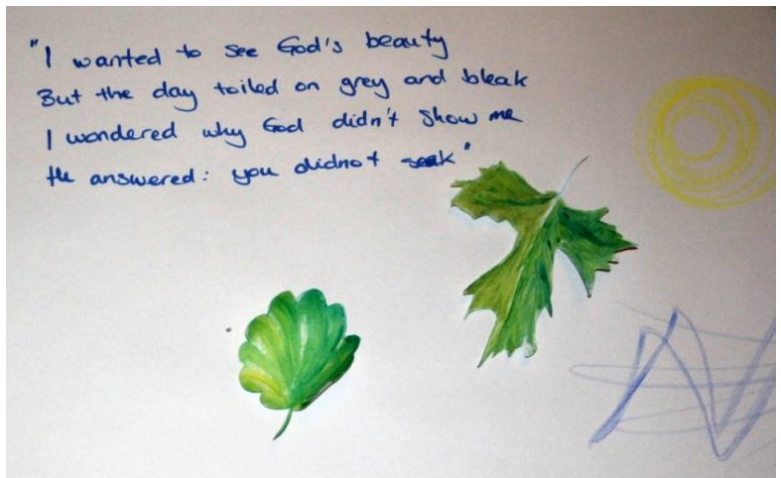 "I wanted to see God's beauty
But the day toiled on grey and bleak
I wondered why God didn't show me
He answered: you didnot seek"